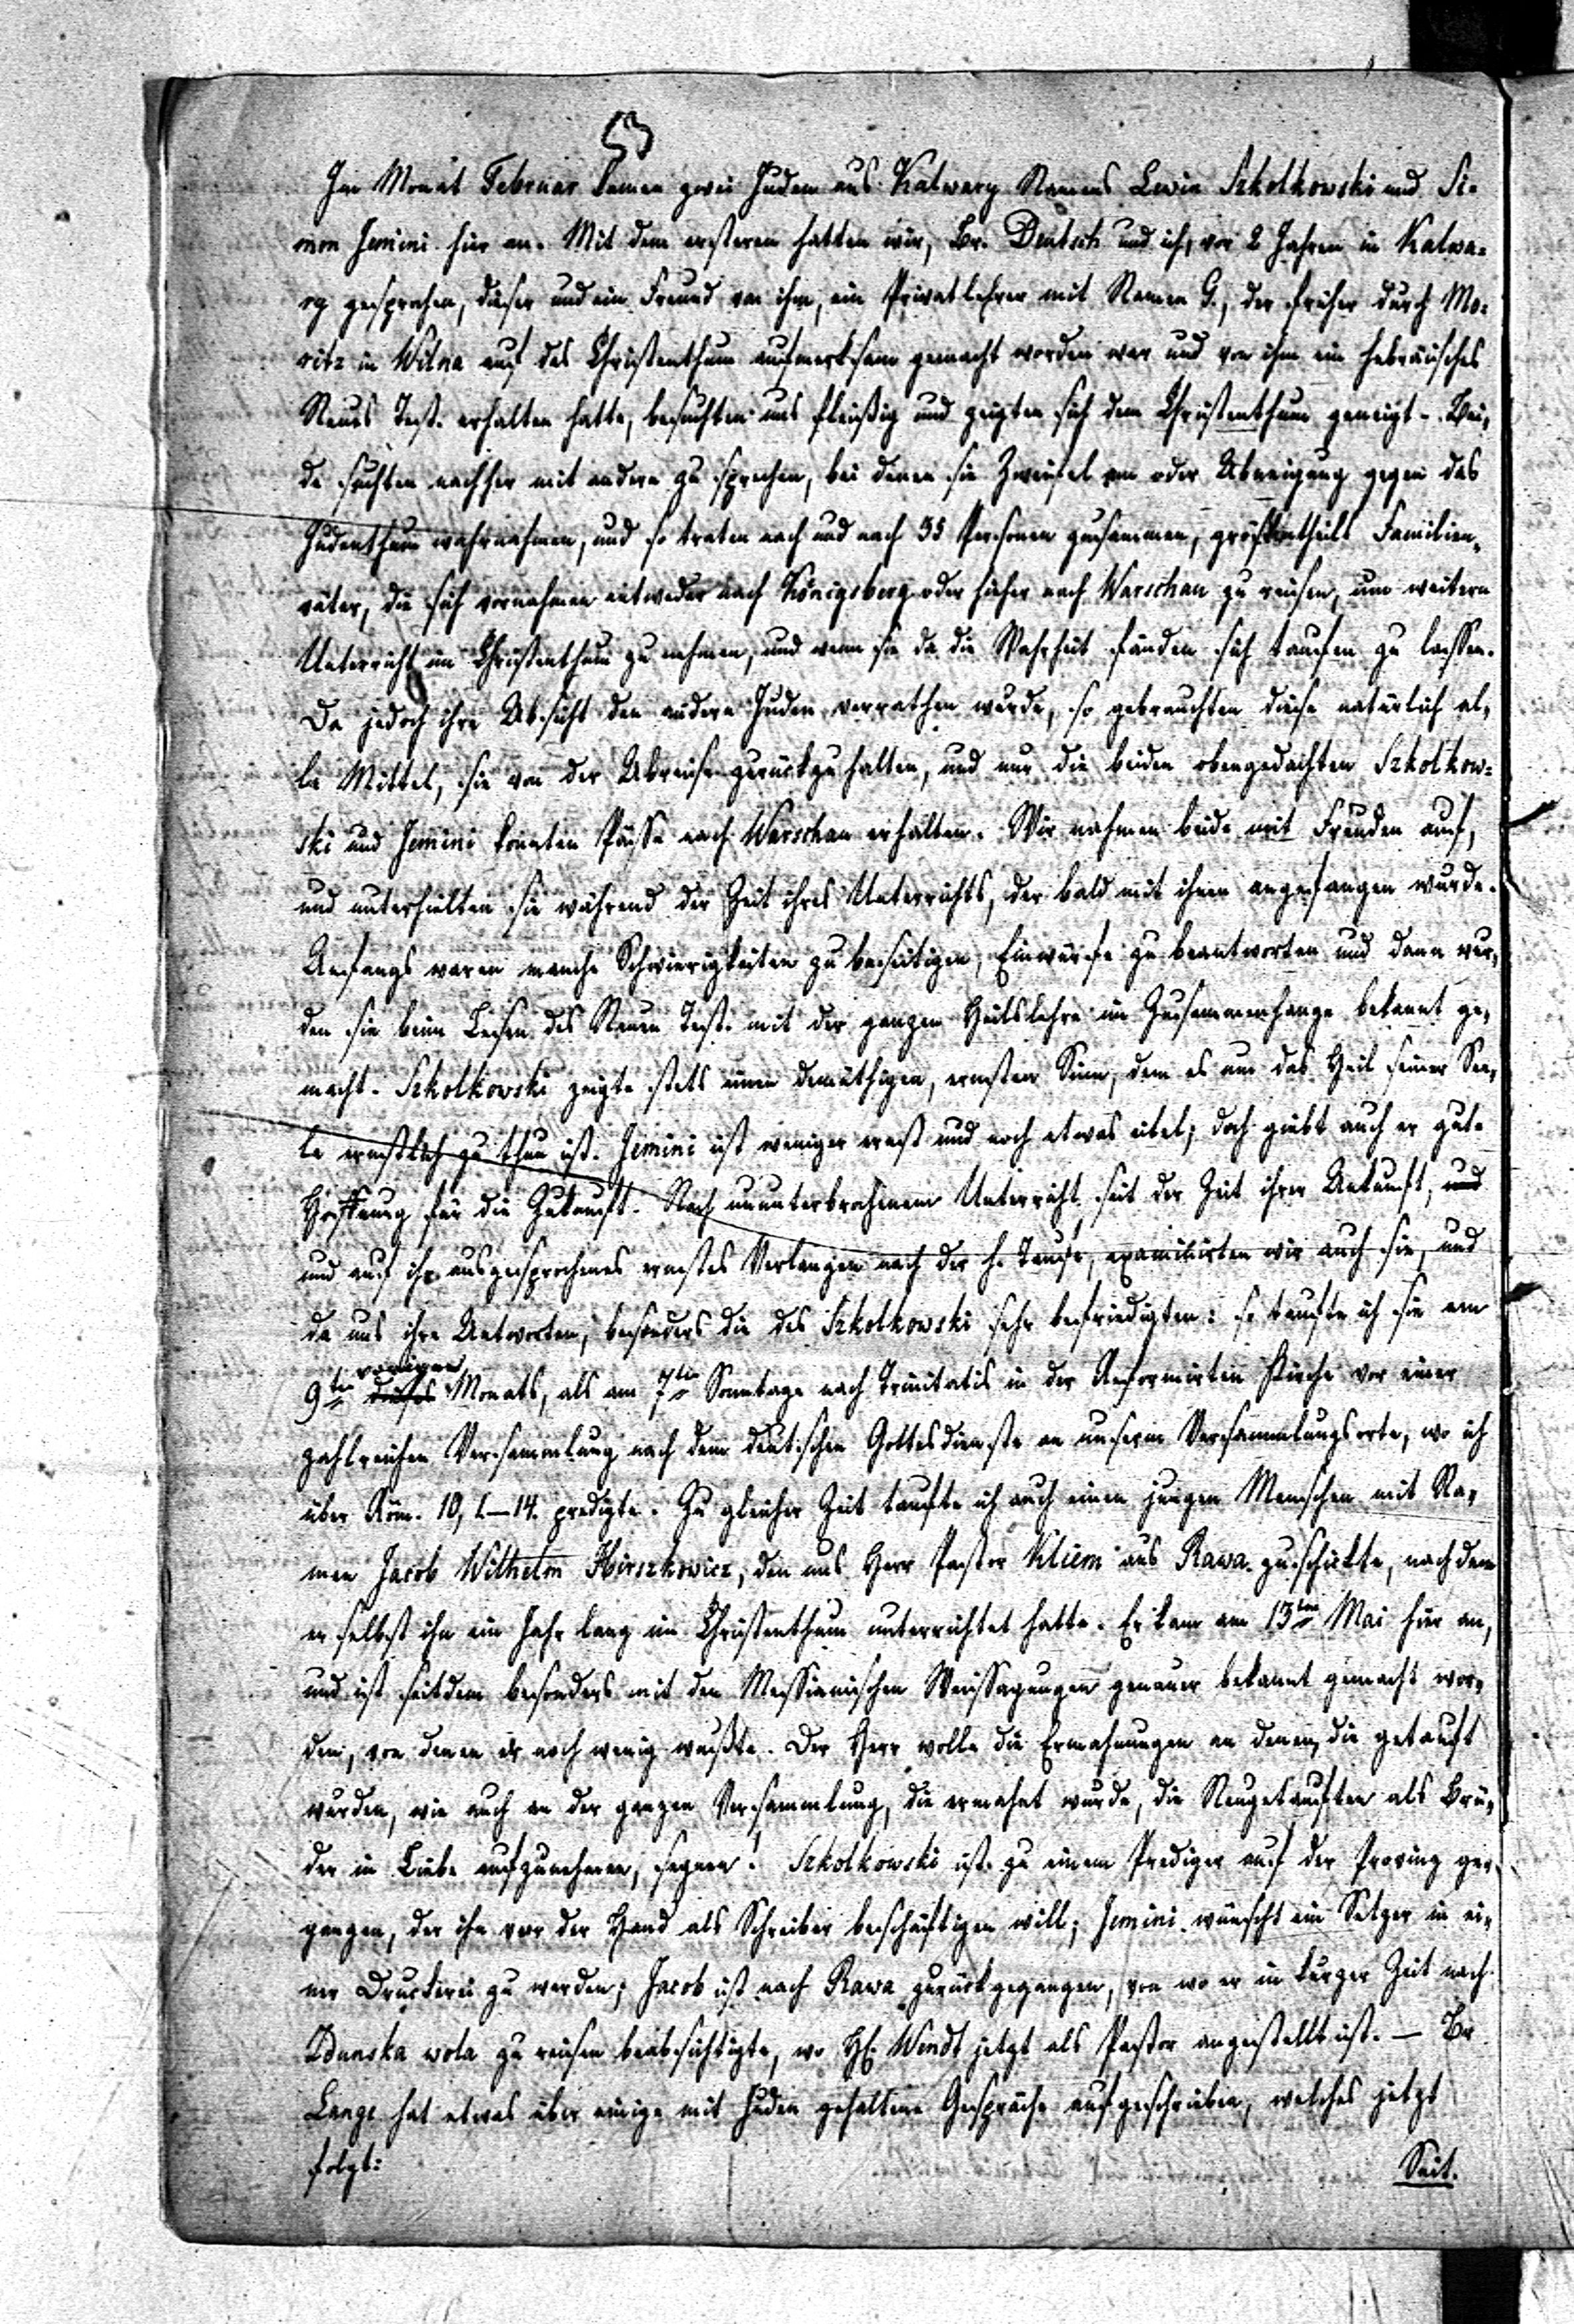 Im Monat Februar kamen zwei Juden aus Kalwary Namens Levin Szkolkowski und Si-
mon Jemini hier an. Mit dem ersteren hatten wir, Br. Deutsch und ich, vor 2 Jahren in Kalwa-
ry gesprochen, dieser und ein Freund von ihm, ein Privatlehrer mit Namen G., der früher durch Mo-
ritz in Wilna auf das Christenthum aufmerksam gemacht worden war und von ihm ein hebräisches
Neues Test. erhalten hatte, besuchten uns fleißig und zeigten sich dem Christenthum geneigt. Bei-
de suchten nachher mit andern zu sprechen, bei denen sie Zweifel am oder Abneigung gegen das
Judenthum wahrnahmen, und so traten nach und nach 35 Personen zusammen, größtentheils Familien-
väter, die sich vornahmen entweder nach Königsberg oder hieher nach Warschau zu reisen, um weitern
Unterricht im Christenthum zu nehmen, und wenn sie da die Wahrheit fänden sich taufen zu lassen.
Da jedoch ihre Absicht den andern Juden verrathen wurde, so gebrauchten diese natürlich al-
le Mittel, sie von der Abreise zurückzuhalten, und nur die beiden obengedachten Szkolkow-
ski und Jemini konnten Pässe nach Warschau erhalten. Wir nahmen beide mit Freuden auf,
und unterhielten sie während der Zeit ihres Unterrichts, der bald mit ihnen angefangen wurde.
Anfangs waren manche Schwierigkeiten zu beseitigen, Einwürfe zu beantworten und dann wur-
den sie beim Lesen des Neuen Test. mit der ganzen Heilslehre im Zusammenhange bekannt ge-
macht. Szkolkowski zeigte stets einen demüthigen, ernsten Sinn, dem es um das Heil seiner See-
le ernstlich zu thun ist. Jemini ist weniger ernst und noch etwas eitel; doch giebt auch er gute
Hoffnung für die Zukunft. Nach ununterbrochenem Unterricht seit der Zeit ihrer Ankunft, und
und auf ihr ausgesprochenes ernstes Verlangen nach der h. Taufe, examinirten wir auch sie, und
da uns ihre Antworten, besonders die des Szkolkowski sehr befriedigten: so taufte ich sie am
9ten dieses vorigen Monats, als am 7ten Sonntage nach Trinitatis in der Reformirten Kirche vor einer
zahlreichen Versammlung nach dem deutschen Gottesdienste an unserm Versammlungsorte, wo ich
über Röm. 10, 1–14. predigte. Zu gleicher Zeit taufte ich auch einen jungen Menschen mit Na-
men Jacob Wilhelm Hirszkowicz, den uns Herr Pastor Kliem aus Rawa zuschickte, nachdem
er selbst ihn ein Jahr lang im Christenthum unterrichtet hatte. Er kam am 13ten Mai hier an,
und ist seitdem besonders mit den Messianischen Weissagungen genauer bekannt gemacht wor-
den, von denen er noch wenig wußte. Der Herr wolle die Ermahnungen an denen, die getauft
wurden, wie auch an der ganzen Versammlung, die ermahnt wurde, die Neugetauften als Brü-
der in Liebe aufzunehmen, segnen! Szkolkowski ist zu einem Prediger auf der Provinz ge-
gangen, der ihn vor der Hand als Schreiber beschäftigen will; Jemini wünscht ein Setzer in ei-
ner Druckerei zu werden; Jacob ist nach Rawa zurückgegangen, von wo er in kurzer Zeit nach
Zdunska wola zu reisen beabsichtigte, wo H. Wendt jetzt als Pastor angestellt ist. — Br.
Lange hat etwas über einige mit Juden gehaltene Gespräche aufgeschrieben, welches jetzt
folgt:
Seit.